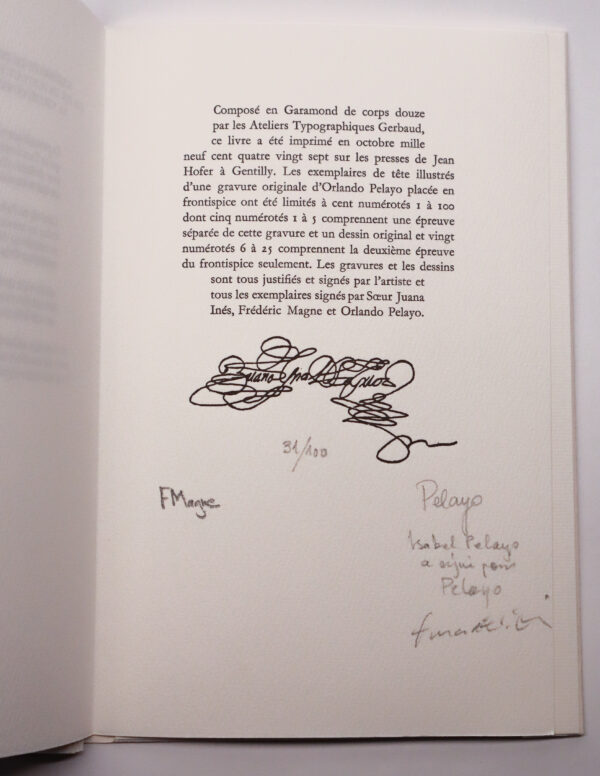 Composé en Garamond de corps douze
par les Ateliers Typographiques Gerbaud,
ce livre a été imprimé en octobre mille
neuf cent quatre vingt sept sur les presses de Jean
Hofer à Gentilly. Les exemplaires de tête illustrés
d'une gravure originale d'Orlando Pelayo placée en
frontispice ont été limités à cent numérotés 1 à 100
dont cinq numérotés 1 à 5 comprennent une épreuve
séparée de cette gravure et un dessin original et vingt
numérotés 6 à 25 comprennent la deuxième épreuve
du frontispice seulement. Les gravures et les dessins
sont tous justifiés et signés par l'artiste et
tous les exemplaires signés par Sœur Juana
Inés, Frédéric Magne et Orlando Pelayo.
31/100
FMagne
Pelayo
Isabel Pelayo
a signé pour
Pelayo